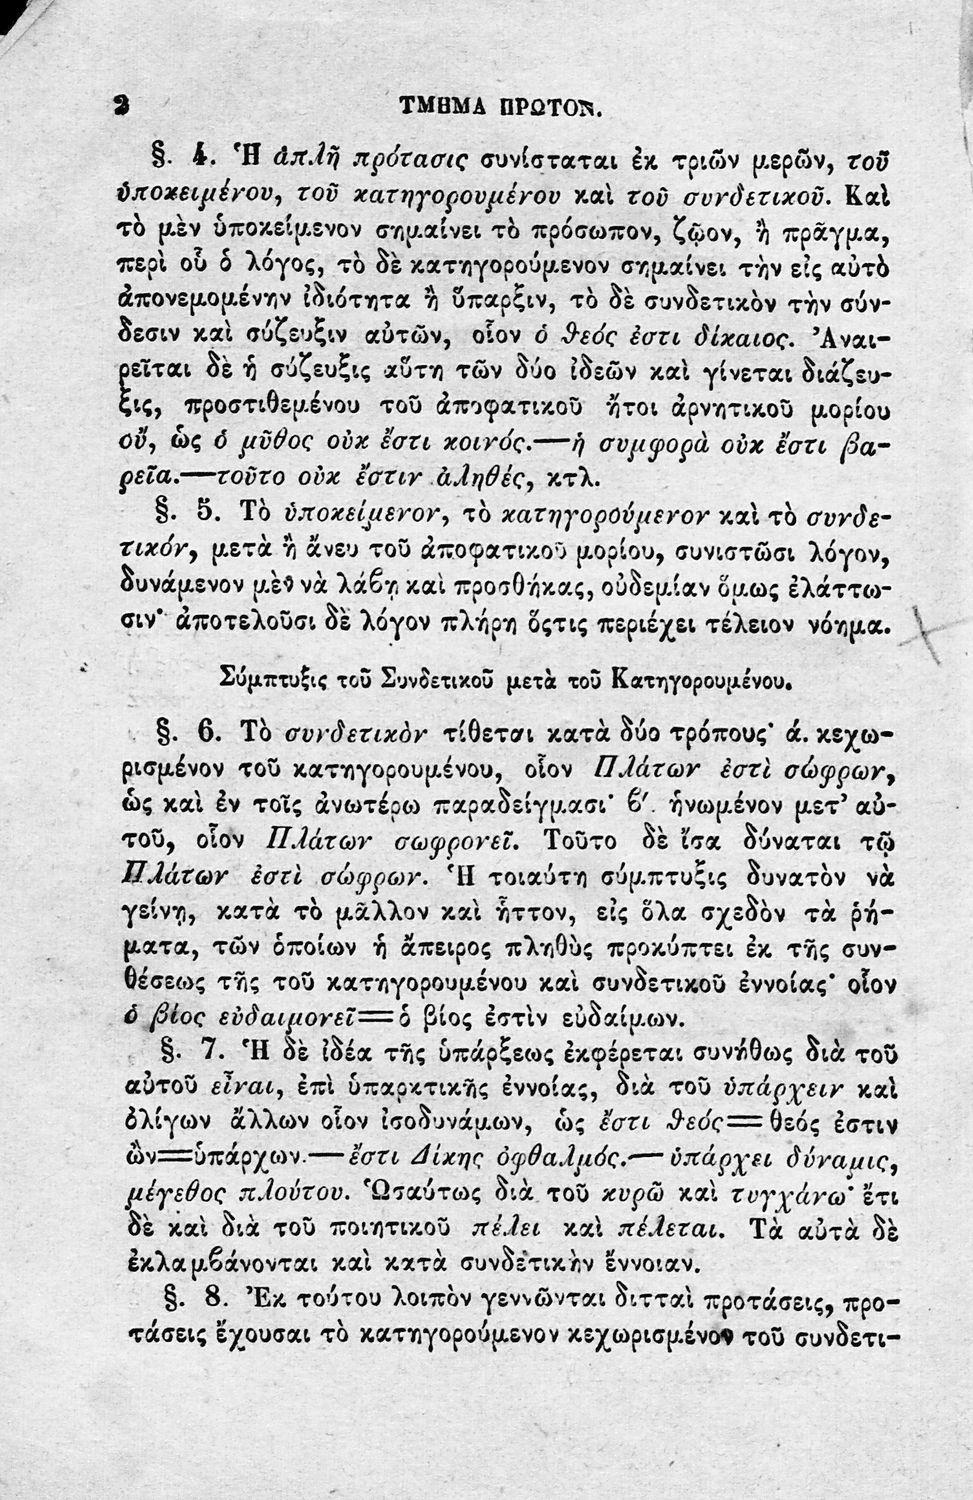 2 ΤΜΗΜΑ ΠΡΩΤΟΝ.
§. 4. Ἡ ἁπλῆ πρότασις συνίσταται ἐκ τριῶν μερῶν, τοῦ
ὑποκειμένου, τοῦ κατηγορουμένου καὶ τοῦ συνδετικοῦ. Καὶ
τὸ μὲν ὑποκείμενον σημαίνει τὸ πρόσωπον, ζῷον, ἢ πρᾶγμα,
περὶ οὗ ὁ λόγος, τὸ δὲ κατηγορούμενον σημαίνει τὴν εἰς αὐτὸ
ἀπονεμομένην ἰδιότητα ἢ ὕπαρξιν, τὸ δὲ συνδετικὸν τὴν σύν-
δεσιν καὶ σύζευξιν αὐτῶν, οἷον ὁ θεός ἐστι δίκαιος. Ἀναι-
ρεῖται δὲ ἡ σύζευξις αὕτη τῶν δύο ἰδεῶν καὶ γίνεται διάζευ-
ξις, προστιθεμένου τοῦ ἀποφατικοῦ ἤτοι ἀρνητικοῦ μορίου
οὔ, ὡς ὁ μῦθος οὐκ ἔστι κοινός.—ἡ συμφορὰ οὐκ ἔστι βα-
ρεῖα.—τοῦτο οὐκ ἔστιν ἀληθές, κτλ.
§. 5. Τὸ ὑποκείμενον, τὸ κατηγορούμενον καὶ τὸ συνδε-
τικόν, μετὰ ἢ ἄνευ τοῦ ἀποφατικοῦ μορίου, συνιστῶσι λόγον,
δυνάμενον μὲν νὰ λάβῃ καὶ προσθήκας, οὐδεμίαν ὅμως ἐλάττω-
σιν· ἀποτελοῦσι δὲ λόγον πλήρη ὅςτις περιέχει τέλειον νόημα.
Σύμπτυξις τοῦ Συνδετικοῦ μετὰ τοῦ Κατηγορουμένου.
§. 6. Τὸ συνδετικὸν τίθεται κατὰ δύο τρόπους· ά. κεχω-
ρισμένον τοῦ κατηγορουμένου, οἷον Πλάτων ἐστὶ σώφρων,
ὡς καὶ ἐν τοῖς ἀνωτέρω παραδείγμασι· β΄. ἡνωμένον μετ’ αὐ-
τοῦ, οἷον Πλάτων σωφρονεῖ. Τοῦτο δὲ ἴσα δύναται τῷ
Πλάτων ἐστὶ σώφρων. Ἡ τοιαύτη σύμπτυξις δυνατὸν νὰ
γείνῃ, κατὰ τὸ μᾶλλον καὶ ἧττον, εἰς ὅλα σχεδὸν τὰ ῥή-
ματα, τῶν ὁποίων ἡ ἄπειρος πληθὺς προκύπτει ἐκ τῆς συν-
θέσεως τῆς τοῦ κατηγορουμένου καὶ συνδετικοῦ ἐννοίας· οἷον
ὁ βίος εὐδαιμονεῖ=ὁ βίος ἐστὶν εὐδαίμων.
§. 7. Ἡ δὲ ἰδέα τῆς ὑπάρξεως ἐκφέρεται συνήθως διὰ τοῦ
αὐτοῦ εἶναι, ἐπὶ ὑπαρκτικῆς ἐννοίας, διὰ τοῦ ὑπάρχειν καὶ
ὀλίγων ἄλλων οἷον ἰσοδυνάμων, ὡς ἔστι θεός=θεός ἐστιν
ὢν=ὑπάρχων.—ἔστι Δίκης ὀφθαλμός.—ὑπάρχει δύναμις,
μέγεθος πλούτου. Ὡσαύτως διὰ τοῦ κυρῶ καὶ τυγχάνω· ἔτι
δὲ καὶ διὰ τοῦ ποιητικοῦ πέλει καὶ πέλεται. Τὰ αὐτὰ δὲ
ἐκλαμβάνονται καὶ κατὰ συνδετικὴν ἔννοιαν.
§. 8. Ἐκ τούτου λοιπὸν γεννῶνται διτταὶ προτάσεις, προ-
τάσεις ἔχουσαι τὸ κατηγορούμενον κεχωρισμένον τοῦ συνδετι-